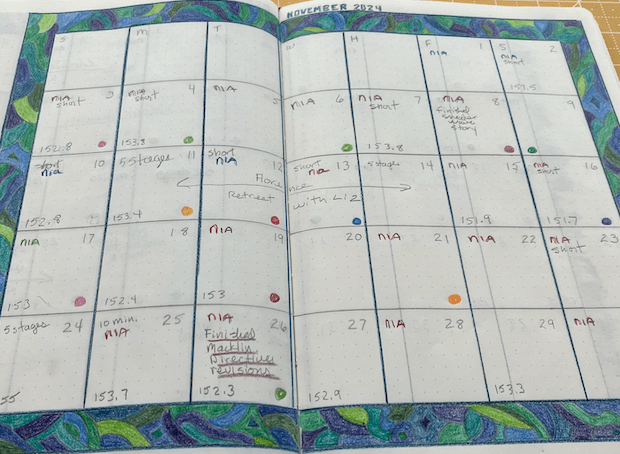 NOVEMBER 2024
S M T W H F S
1
NIA
2
NIA
short
153.5
3
NIA
short
152.8
4
NIA
short
153.8
5
NIA
6
NIA
7
NIA
short
153.8
8
NIA
finished
story
9
10
short
nia
152.8
11
5 stages
153.4
12
short
NIA
Flore
Retreat
13
short
nia
nce
with Liz
14
5 stages
15
NIA
151.9
16
NIA
short
151.7
17
NIA
153
18
152.4
19
NIA
153
20
21
NIA
22
NIA
23
NIA
short
24
5 stages
55
25
10 min.
NIA
153.7
26
NIA
Finished
Macklin
Directive
revisions
152.3
27
152.9
28
NIA
29
153.3
NIA